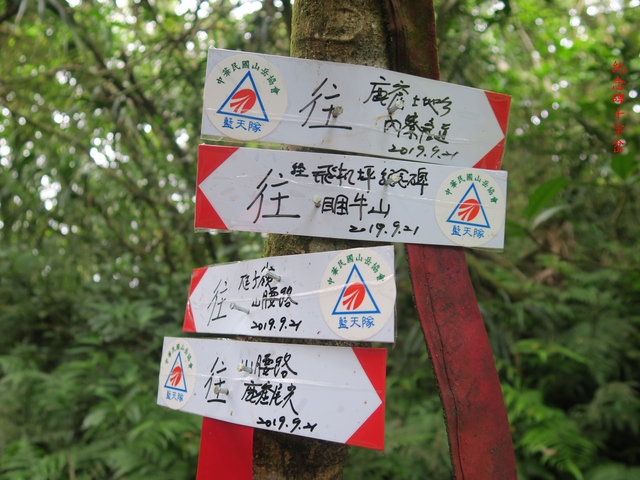 中華民國山岳協會
藍天隊
往
鹿寮土地公
內寮古道
2019.9.21
往
往飛机坪紀念碑
睏牛山
2019.9.21
中華民國山岳協會
藍天隊
往
山腰路
2019.9.21
中華民國山岳協會
藍天隊
中華民國山岳協會
藍天隊
往
山腰路
鹿寮尾尖
2019.9.21